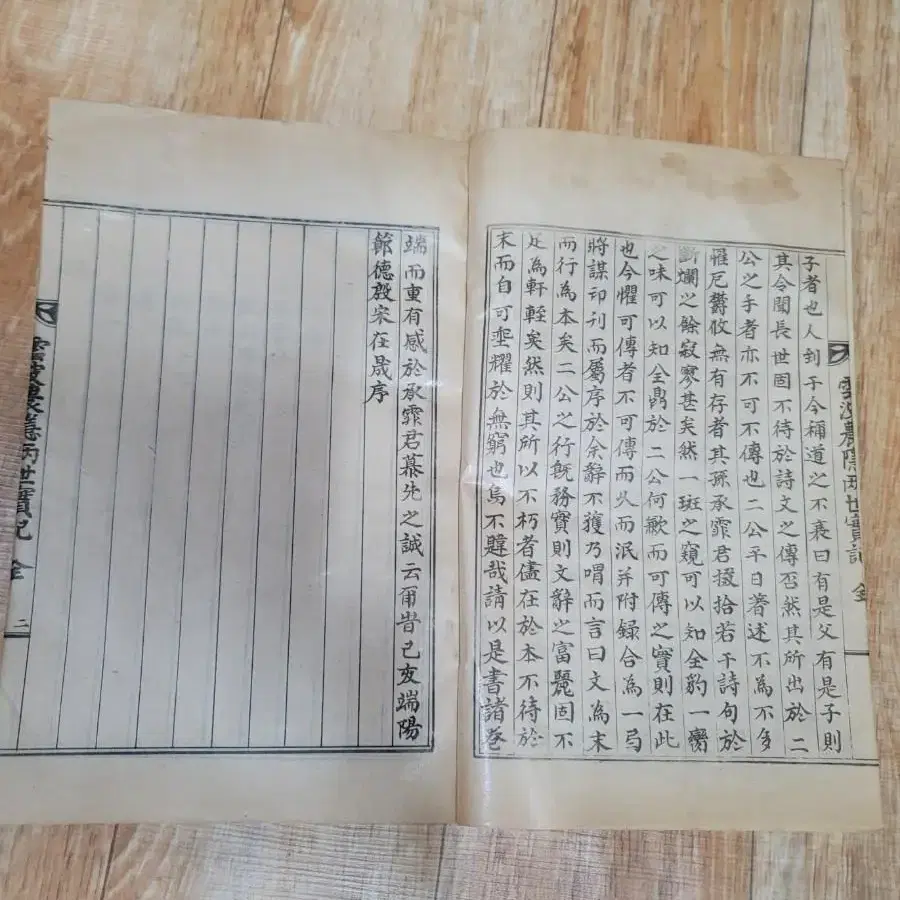 子者也人到于今稱道之不衰曰有是父有是子則
其令聞長世固不待於詩文之傳否然其所出於二
公之手者亦不可不傳也二公平日著述不為不多
罹厄欝攸無有存者其孫承霏君掇拾若干詩句於
斷爛之餘寂寥甚矣然一斑之窺可以知全豹一臠
之味可以知全鼎於二公何歉而可傳之實則在此
也今懼可傳者不可傳而久而泯并附録合為一弓
將謀印刊而属序於余辭不獲乃喟而言曰文為末
而行為本矣二公之行既務實則文辭之富麗固不
足為軒輊矣然則其所以不朽者儘在於本不待於
末而自可垂耀於無窮也烏不韙哉請以是書諸卷
雲波農隱兩世實記 全
端而重有感於承霏君慕先之誠云爾昔己亥端陽
節德殷宋在晟序
雲波農隱兩世實記 全 二